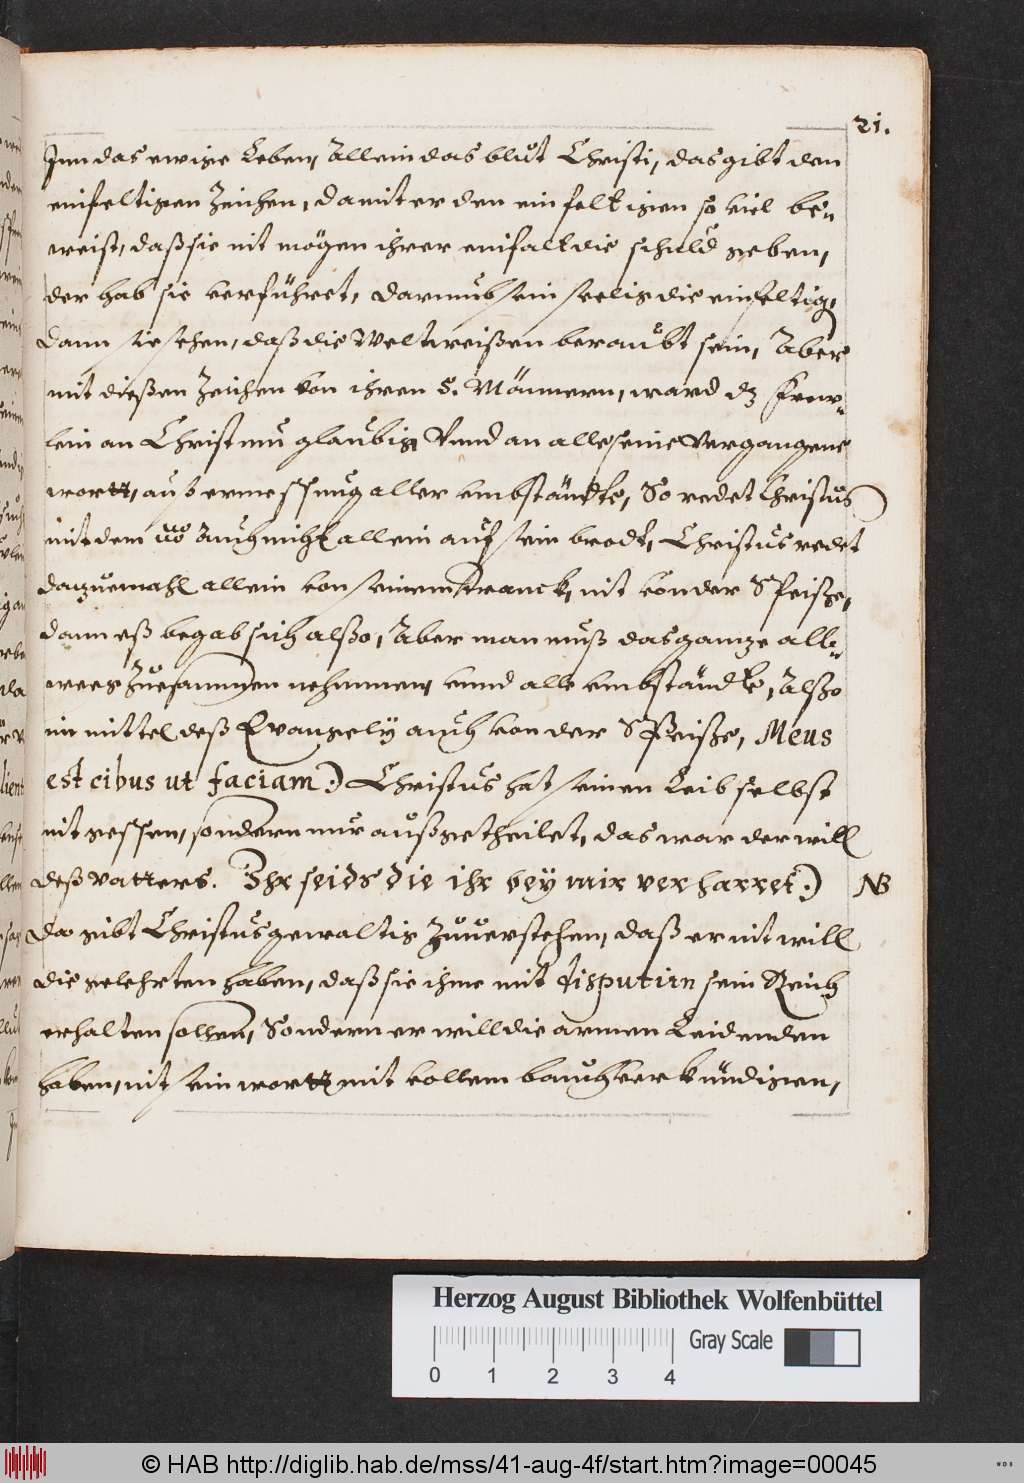 21.
Inn das ewige Leben, Allein das blut Christi, das gibt den
einfeltigen Zeichen, damit er den einfeltigen so viel be„
weist, daß sie nit mögen ihrer einfalt die schuld geben,
der hab sie verführet, darumb sein seelig die einfeltig,
dann sie sehen, daß die Weltweißen beraubt sein, Aber
mit dießen Zeichen von ihren 5. Männern, ward dz frew„
lein an Christum glaubig Vnnd an alle seine vergangene
wortt, auß ermessung aller vmbstände, So redet Christus
mit dem auch nicht allein auf sein brodt, Christus redet
dazuemahl allein von seinem tranck, nit von der Speiße,
dann eß begab sich alßo, Aber man muß das gantze all„
weeg Zuesammen nehmmen, vnnd alle vmbstände, Alßo
im mittel deß Evangely auch von der Speiße, Meus
est cibus ut faciam.) Christus hat seinen Leib selbst
nit gessen, sondern nur außgetheilet, das war der will
deß vatters. Ihr seids die ihr bey mir verharret.) NB
Da gibt Christus gewaltig Zuuerstehen, daß er nit will
die gelehrten haben, daß sie ihme mit disputirn sein Reich
erhalten sollen, Sondern er will die armen Leidenden
haben, nit sein wortt mit vollem bauch verkündigen,
Herzog August Bibliothek Wolfenbüttel
Gray Scale
0 1 2 3 4
© HAB http://diglib.hab.de/mss/41-aug-4f/start.htm?image=00045